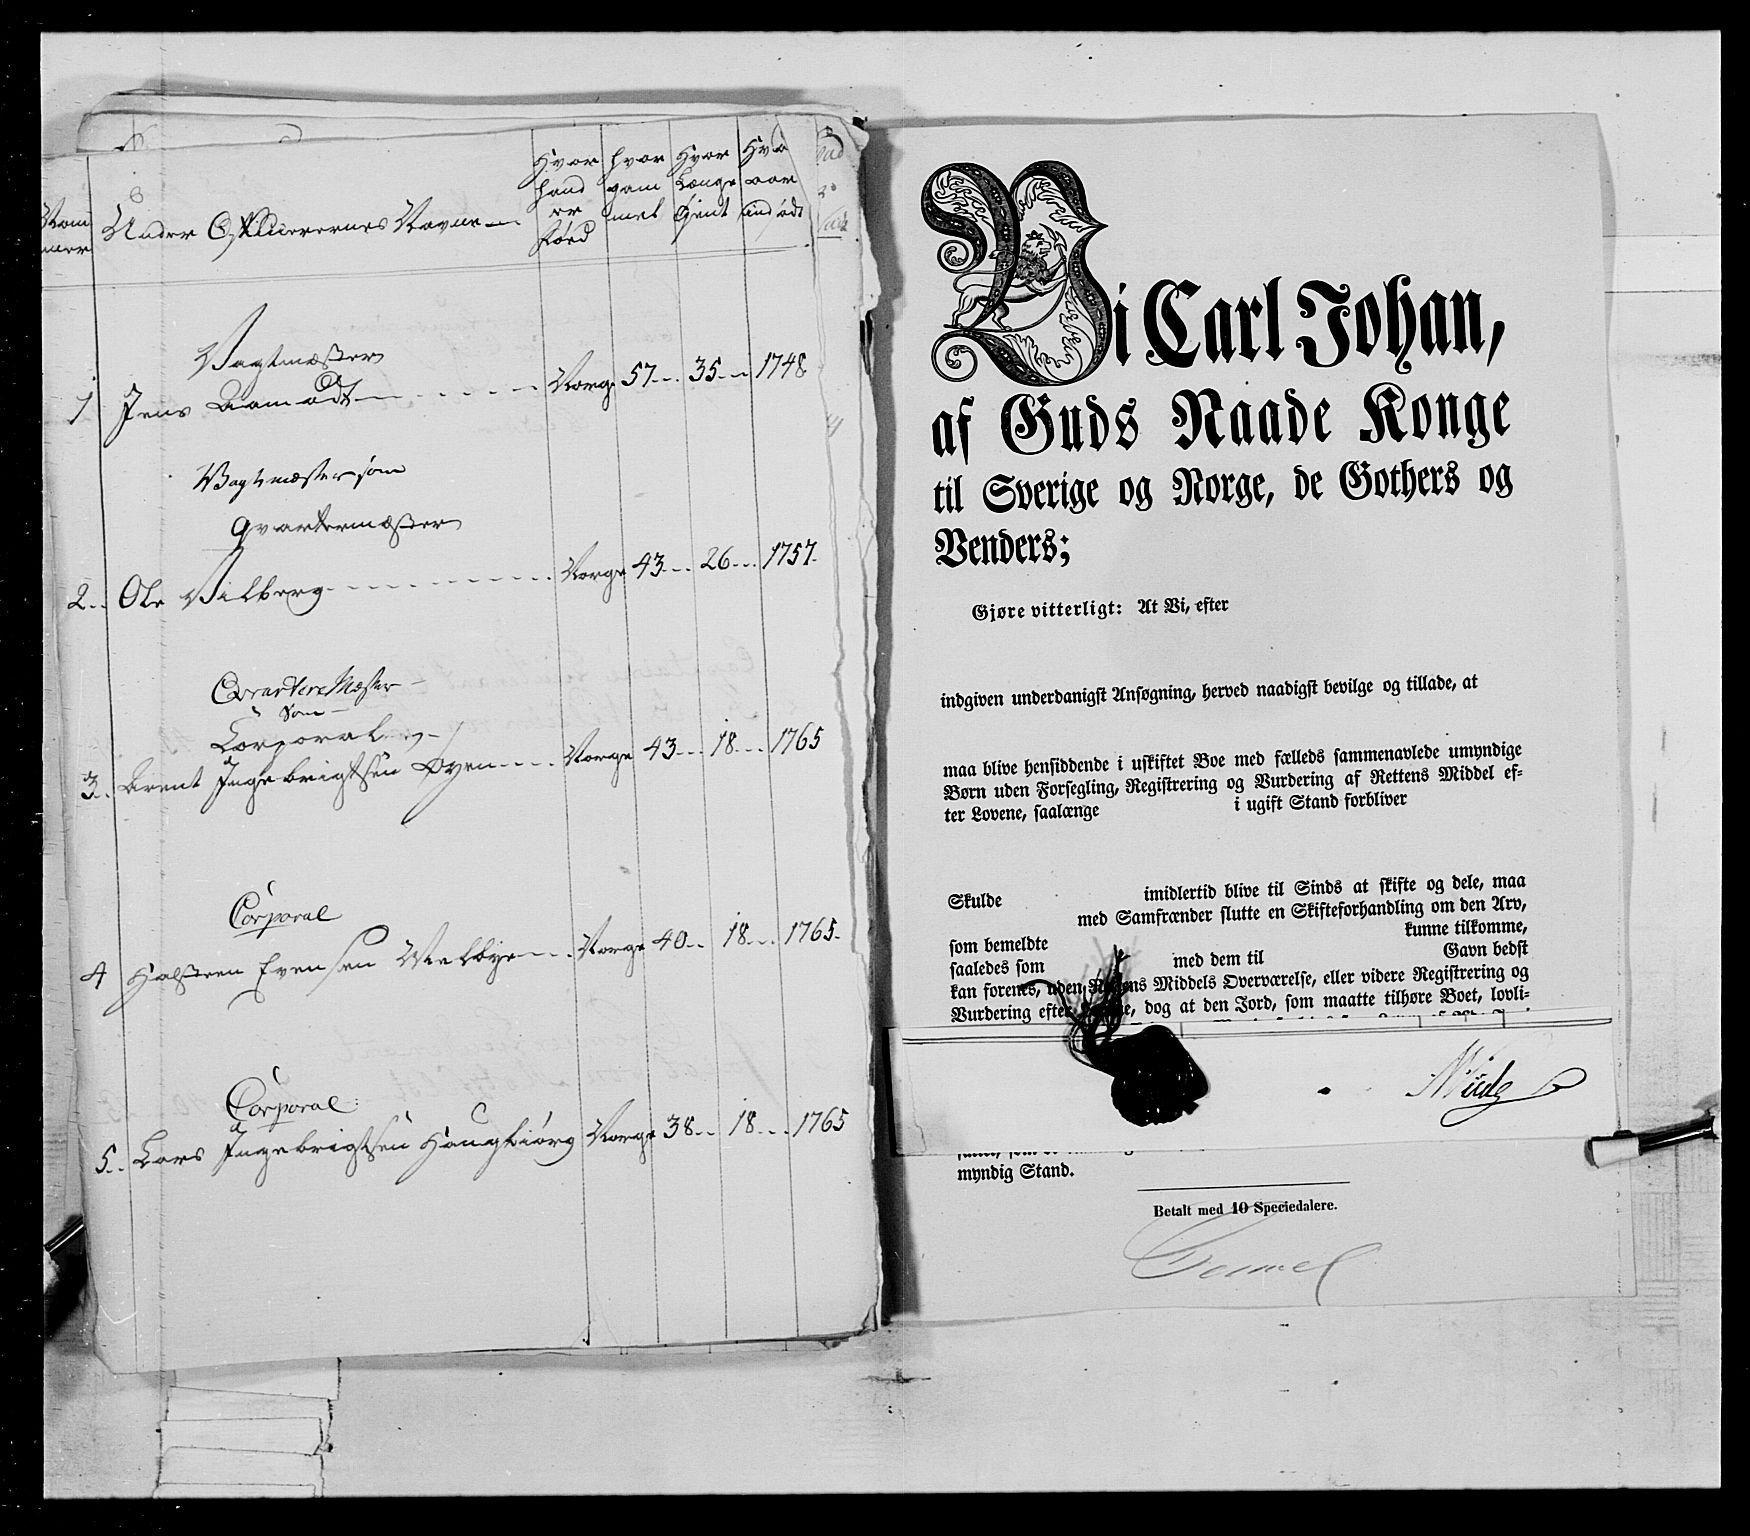 Nom
mer
Under Officerernes Navne
Hvor
hand
er
Fød
hvor
gam
mel
Hvor
Længe
tient
aar
1
Vagtmæster
Jens Aamodt Norge 57 35 1748
Vagtmæster som
Qvartermæster
2 Ole Vilberg Norge 43 26 1757
Qvarteer Mæster
Som
Corporal
3 Arent Ingebrigtsen Øyen Norge 43 18 1765
Corporal
4 Halsteen Evensen Melbye Norge 40 18 1765
Corporal
5 Lars Ingebrigtsen Haugbiørg Norge 38 18 1765
Vi Carl Johan,
af Guds Naade Konge
til Sverige og Norge, de Gothers og
Venders;
Gjøre vitterligt: At Vi, efter
indgiven underdanigst Ansøgning, herved naadigst bevilge og tillade, at
maa blive hensiddende i uskiftet Boe med fælleds sammenavlede umyndige
Børn uden Forsegling, Registrering og Vurdering af Rettens Middel ef-
ter Lovene, saalænge i ugift Stand forbliver
Skulde imidlertid blive til Sinds at skifte og dele, maa
med Samfrænder slutte en Skifteforhandling om den Arv,
som bemeldte kunne tilkomme,
saaledes som med dem til Gavn bedst
kan forenes, uden Rettens Middels Overværelse, eller videre Registrering og
Vurdering efter Lovene, dog at den Jord, som maatte tilhøre Boet, lovli-
myndig Stand.
Betalt med 10 Speciedalere.